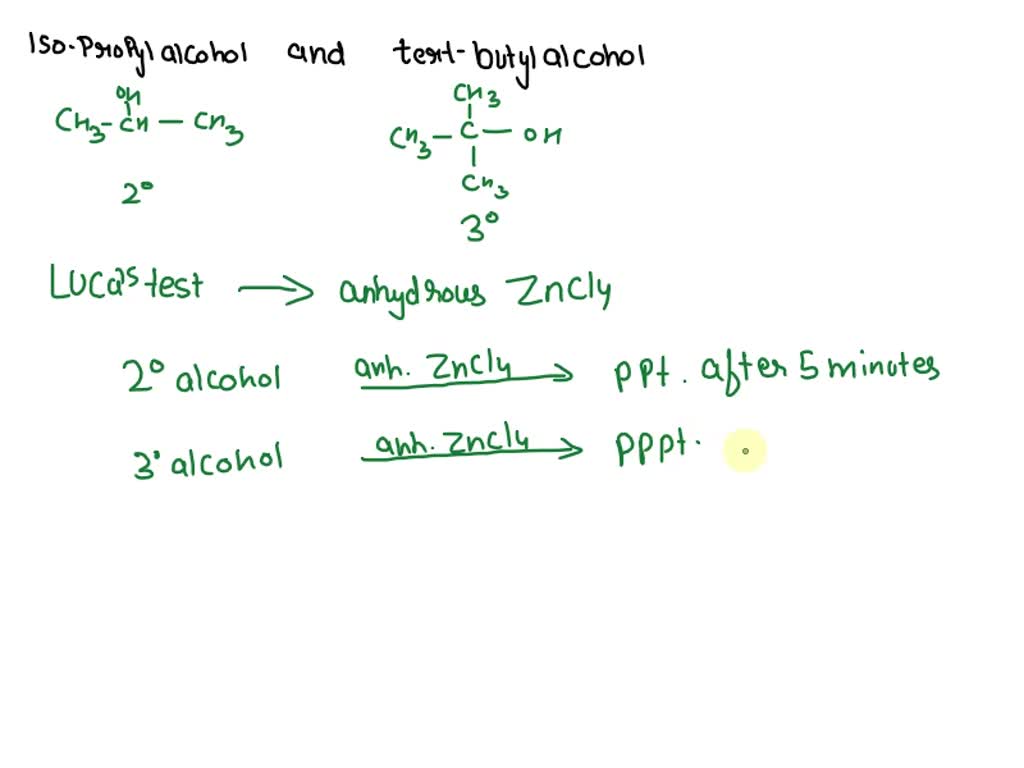 Iso-Propyl alcohol and tert-butyl alcohol
OH
CH3-CH-CH3
2°
CH3
CH3-C-OH
CH3
3°
Lucas test → anhydrous ZnCl4
2° alcohol anh. ZnCl4 → ppt. after 5 minutes
3° alcohol anh. ZnCl4 → pppt.